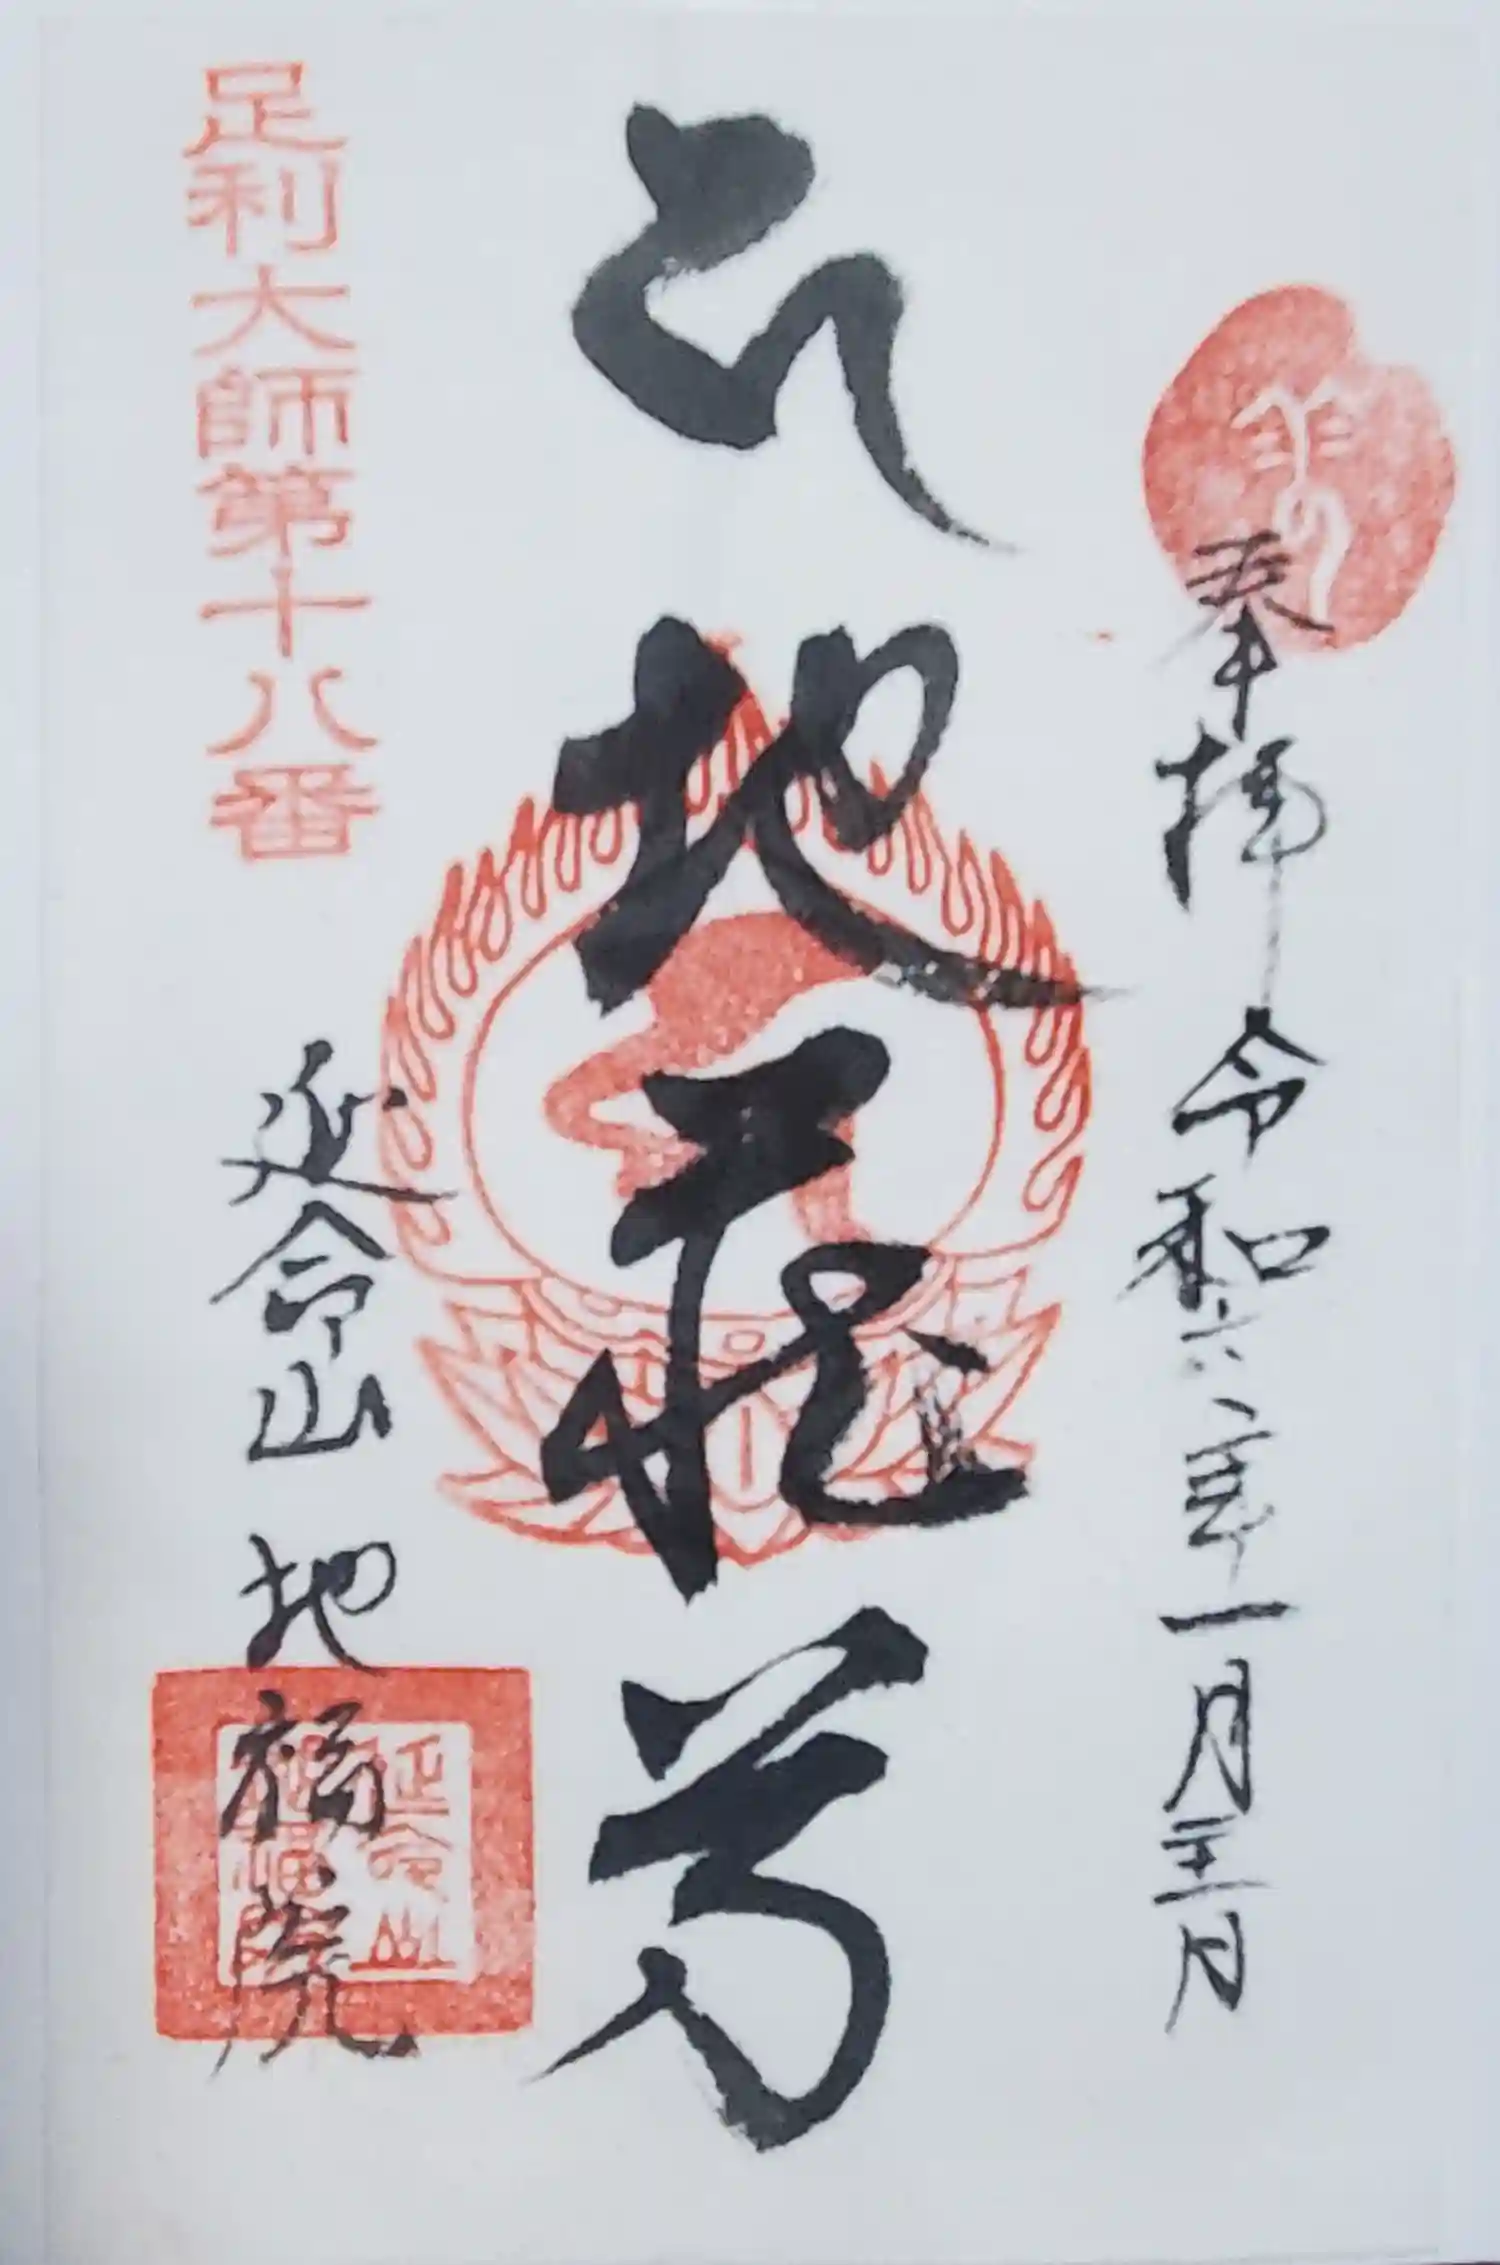 奉拝 令和六年一月二十一日
地蔵尊
足利大師第十八番
延命山 地福院
延命山
地福院